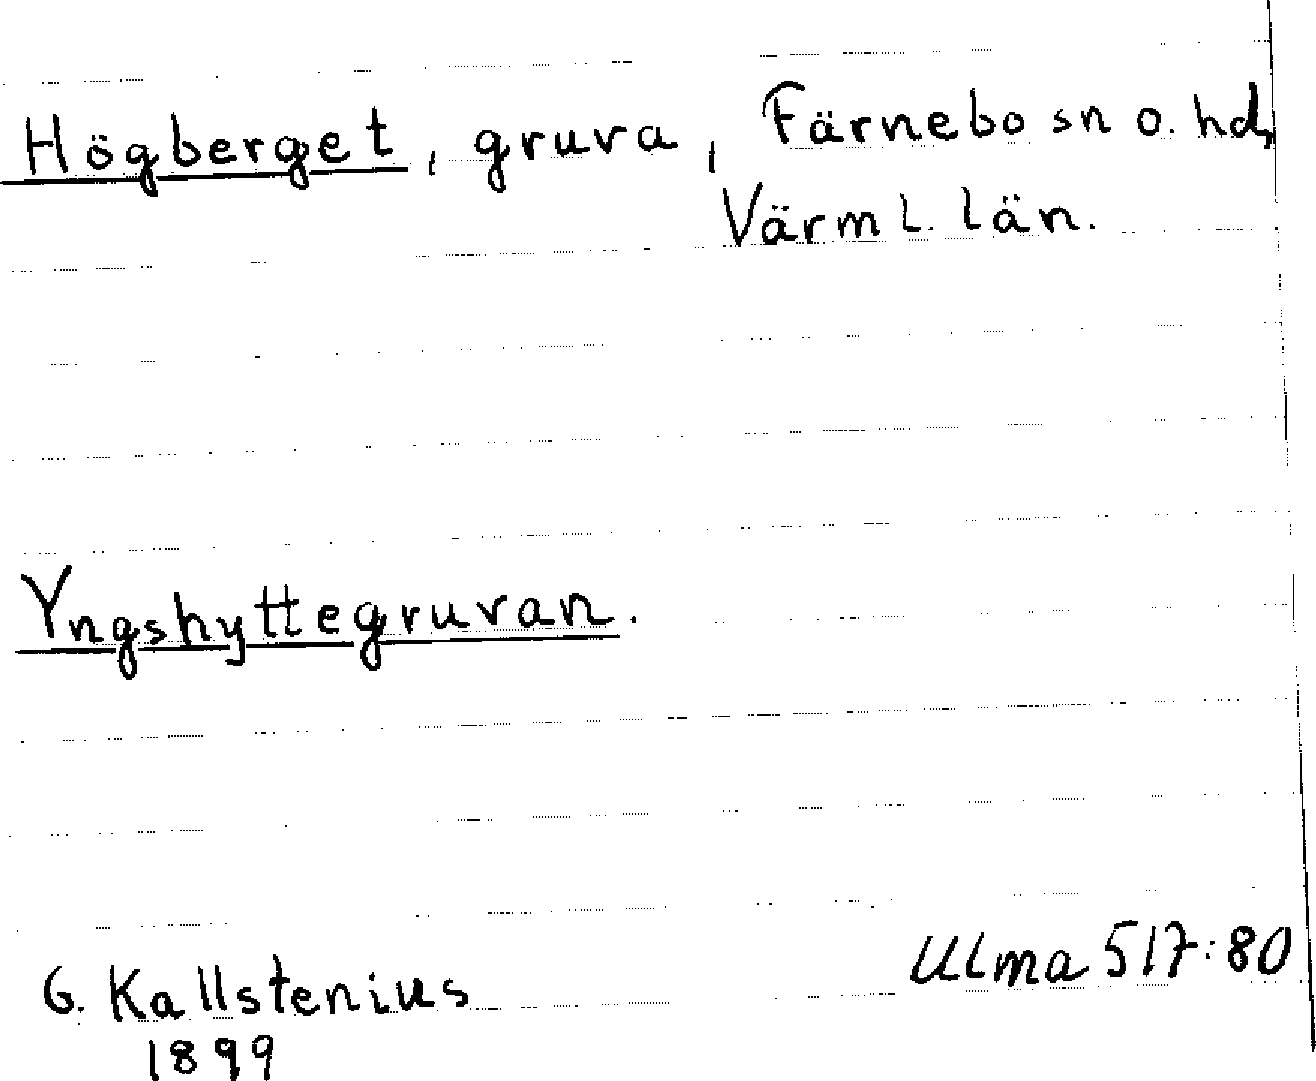 Högberget, gruva, Färnebo sn o. hd,
Värml. län.
Yngshyttegruvan.
G. Kallstenius
1899
Ulma 517:80